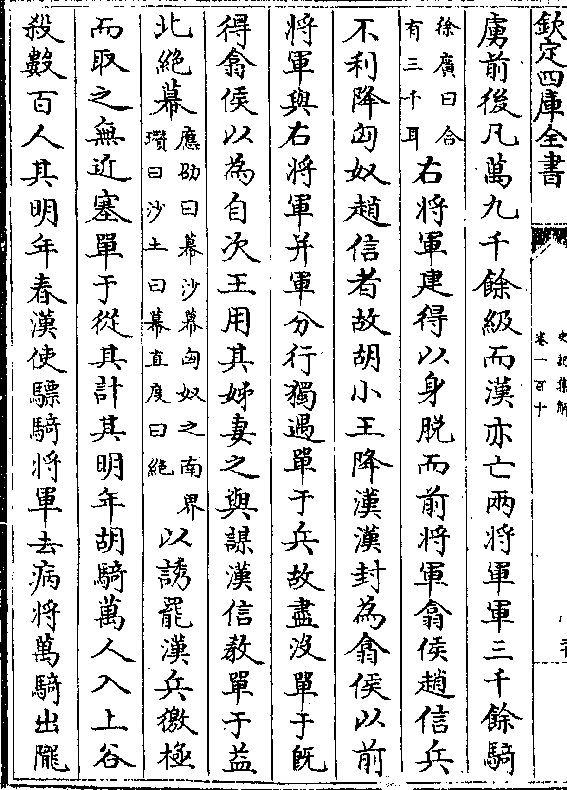 欽定四庫全書
史記集解
卷一百十
虜前後凡萬九千餘級而漢亦亡兩將軍軍三千餘騎
徐廣曰合
有三千耳
右將軍建得以身脫而前將軍翕侯趙信兵
不利降匈奴趙信者故胡小王降漢漢封為翕侯以前
將軍與右將軍并軍分行獨遇單于兵故盡没單于既
得翕侯以為自次王用其姊妻之與謀漢信教單于益
北絶幕
應劭曰幕沙幕匈奴之南界
瓚曰沙土曰幕直度曰絶
以誘罷漢兵徼極
而取之無近塞單于從其計其明年胡騎萬人入上谷
殺數百人其明年春漢使驃騎將軍去病將萬騎出隴